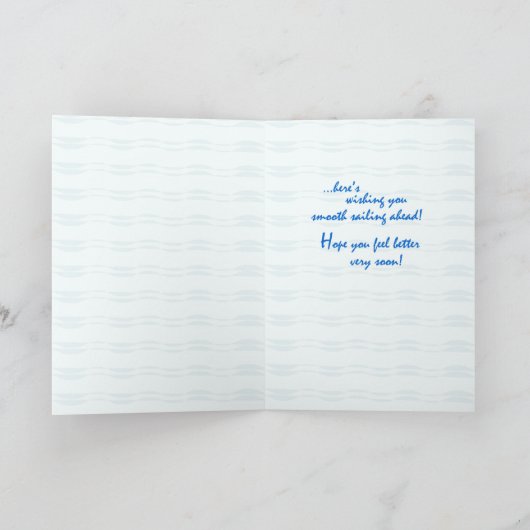 ...here's
wishing you
smooth sailing ahead!
Hope you feel better
very soon!